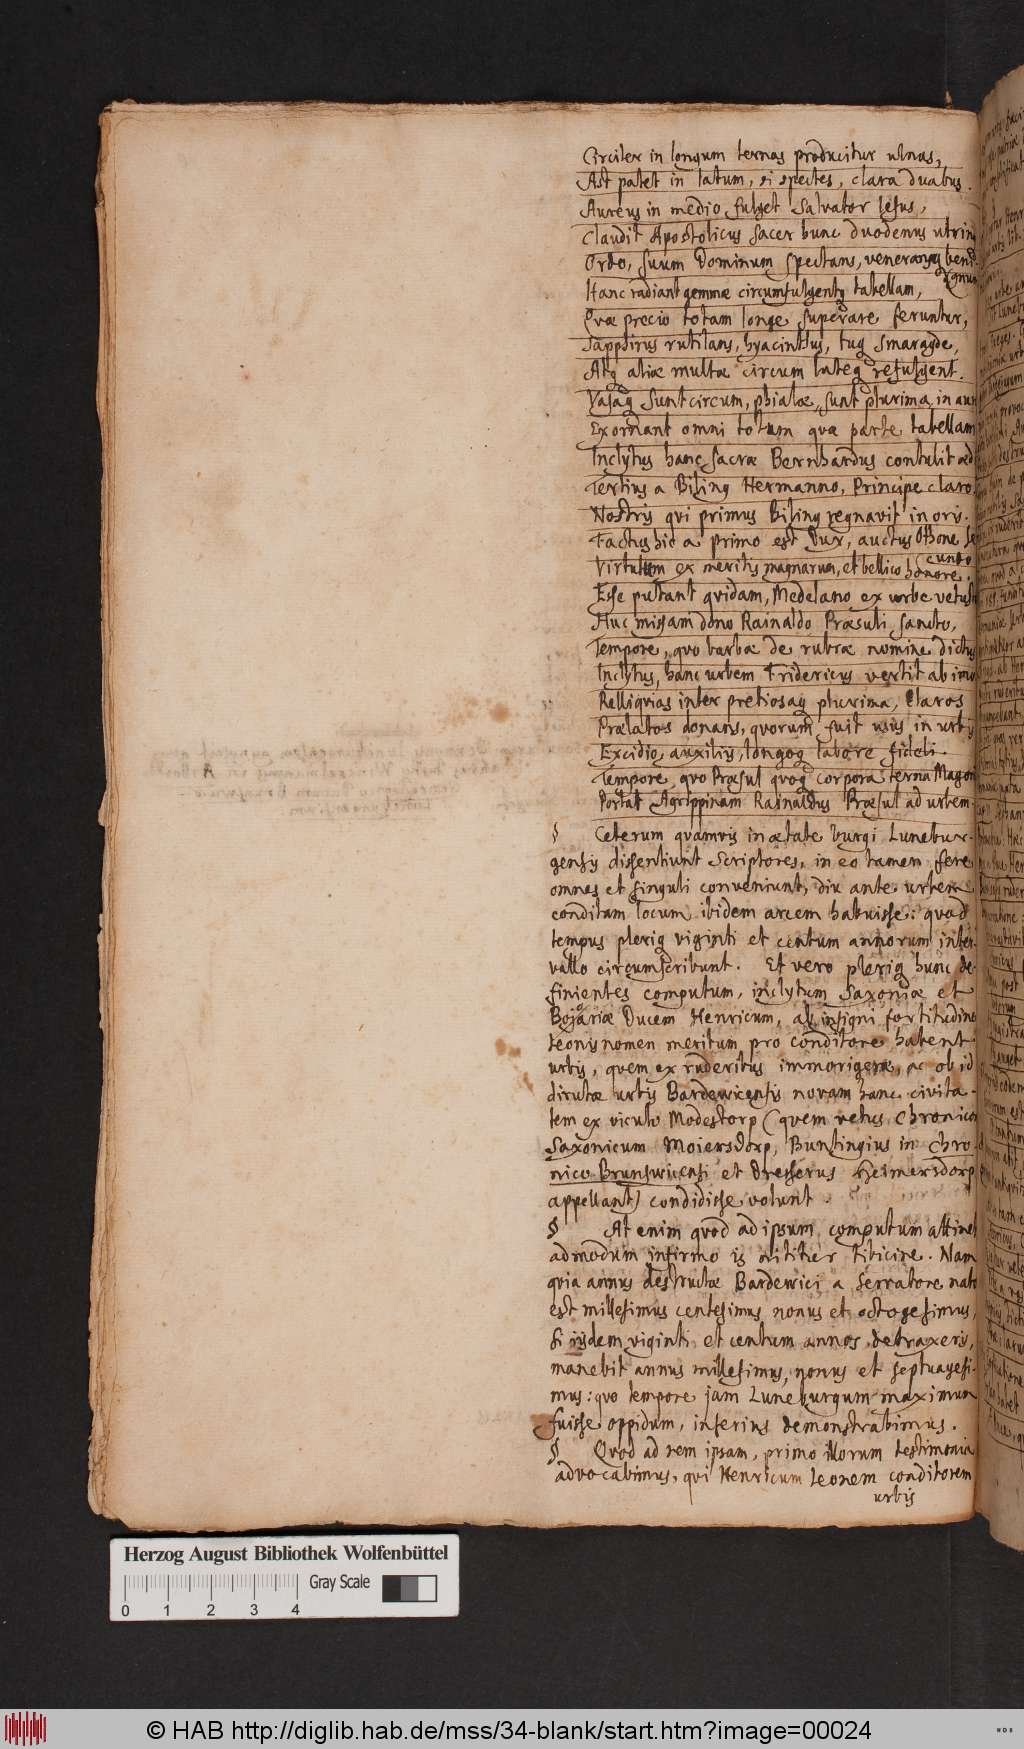 Circiter in longum ternas producitur ulnas,
Ast patet in latum, si spectes, clara duabus.
Aureus in medio fulget Salvator Iesus,
Claudit Apostolicus sacer hunc duodenus utrinq
Ordo, suum Dominum spectans, veneransq
Hanc radiant gemmæ circumfulgentq tabellam,
Qvæ precio totam longe superare feruntur,
Sapphirus rutilans, hyacinthus, tuq smaragde,
Atq aliæ multæ circum lateq refulgent.
Vasaq sunt circum, phialæ, sunt plurima in
Exornant omni totum qvæ parte tabellam
Inclytus hanc sacræ Bernhardus contulit æd
Tertius a Biling Hermanno, Principe claro
Nostris qvi primus Biling regnavit in oris.
Factus hic a primo est Dux, auctus Othone se
cundo
Virtutum ex meritis magnarum, et bellico honore.
Esse putant qvidam, Medelano ex urbe vetust
Huc missam dono Rainaldo Præsuli sancto,
Tempore, qvo barbæ de rubræ nomine dictus
Inclytus, hanc urbem Fridericus vertit ab imo
Relliqvias inter pretiosaq plurima, Claros
Prælatos donans, qvorum fuit usus in urbis
Excidio, auxiliis, longoq labore fideli.
Tempore qvo Præsul qvoq corpora terna Magor
Portat Agrippinam Rainaldus Præsul ad urbem.
§ Ceterum qvamvis in ætate burgi Lunebur-
gensis dissentiunt Scriptores, in eo tamen fere
omnes et singuli conveniunt, diu ante urbem
conditam locum ibidem arcem habuisse: qvod
tempus pleriq viginti et centum annorum inter-
vallo circumscribunt. Et vero pleriq hunc de-
finientes computum, inclytum Saxoniæ et
Bojariæ Ducem Henricum, ab insigni fortitudine
leonis nomen meritum pro conditore habent
urbis, qvem ex ruderibus immorigeræ, ac ob id
dirutæ urbis Bardewicensis novam hanc civita-
tem ex viculo Modestorp (qvem vetus Chronicon
Saxonicum Moiersdorp, Buntingius in Chro-
nico Brunswicensi et Dresserus Heimersdorp
appellant) condidisse volunt.
§ At enim qvod ad ipsum computum attinet
admodum infirmo is nititur tibicine. Nam
qvia annus destructæ Bardewici a Servatore nato
est millesimus centesimus nonus et octogesimus,
si iisdem viginti et centum annos detraxeris,
manebit annus millesimus, nonus et septuagesi-
mus: qvo tempore jam Luneburgum maximum
fuisse oppidum, inferius demonstrabimus.
§ Qvod ad rem ipsam, primo illorum testimonia
advocabimus, qvi Henricum leonem conditorem
urbis
Herzog August Bibliothek Wolfenbüttel
Gray Scale
0 1 2 3 4
© HAB http://diglib.hab.de/mss/34-blank/start.htm?image=00024